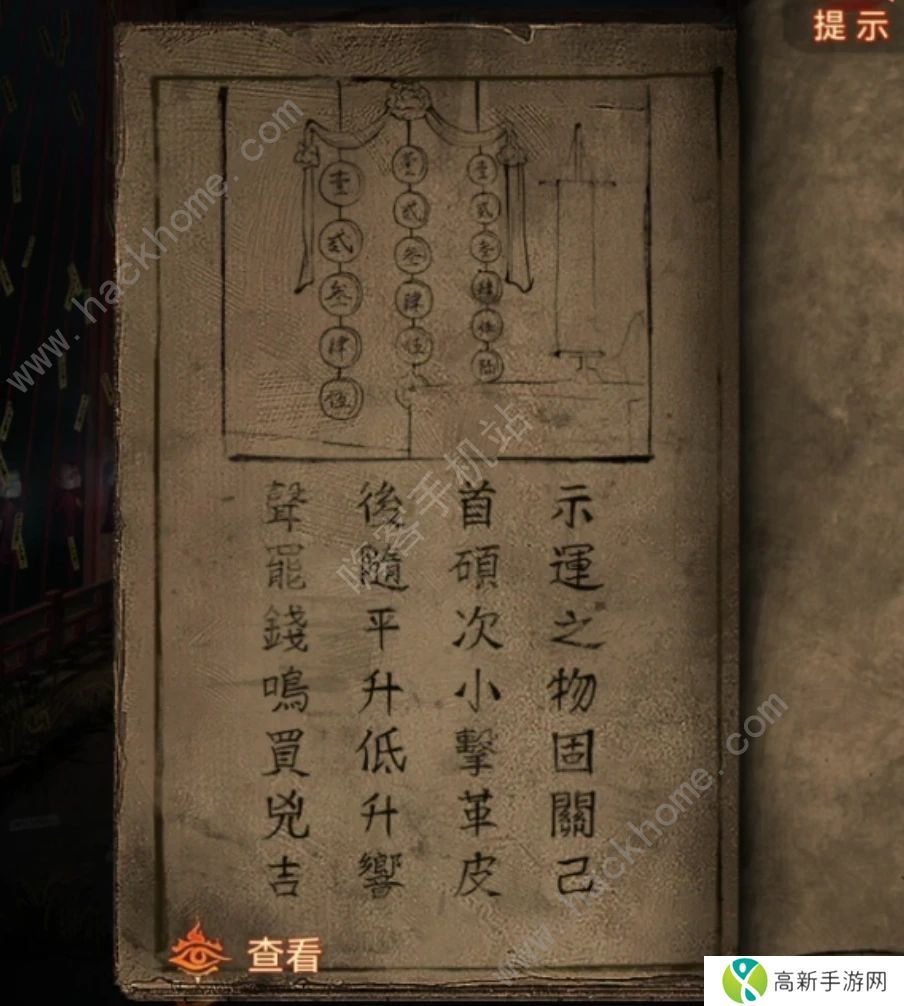 提示
壹
貳
叁
肆
伍
壹
貳
叁
肆
伍
壹
貳
叁
肆
伍
陆
示運之物固關己
首碩次小擊革皮
後隨平升低升響
聲罷錢鳴買兇吉
查看
www.hackhome.com
嗨客手机站
www.hackhome.com
高新手游网